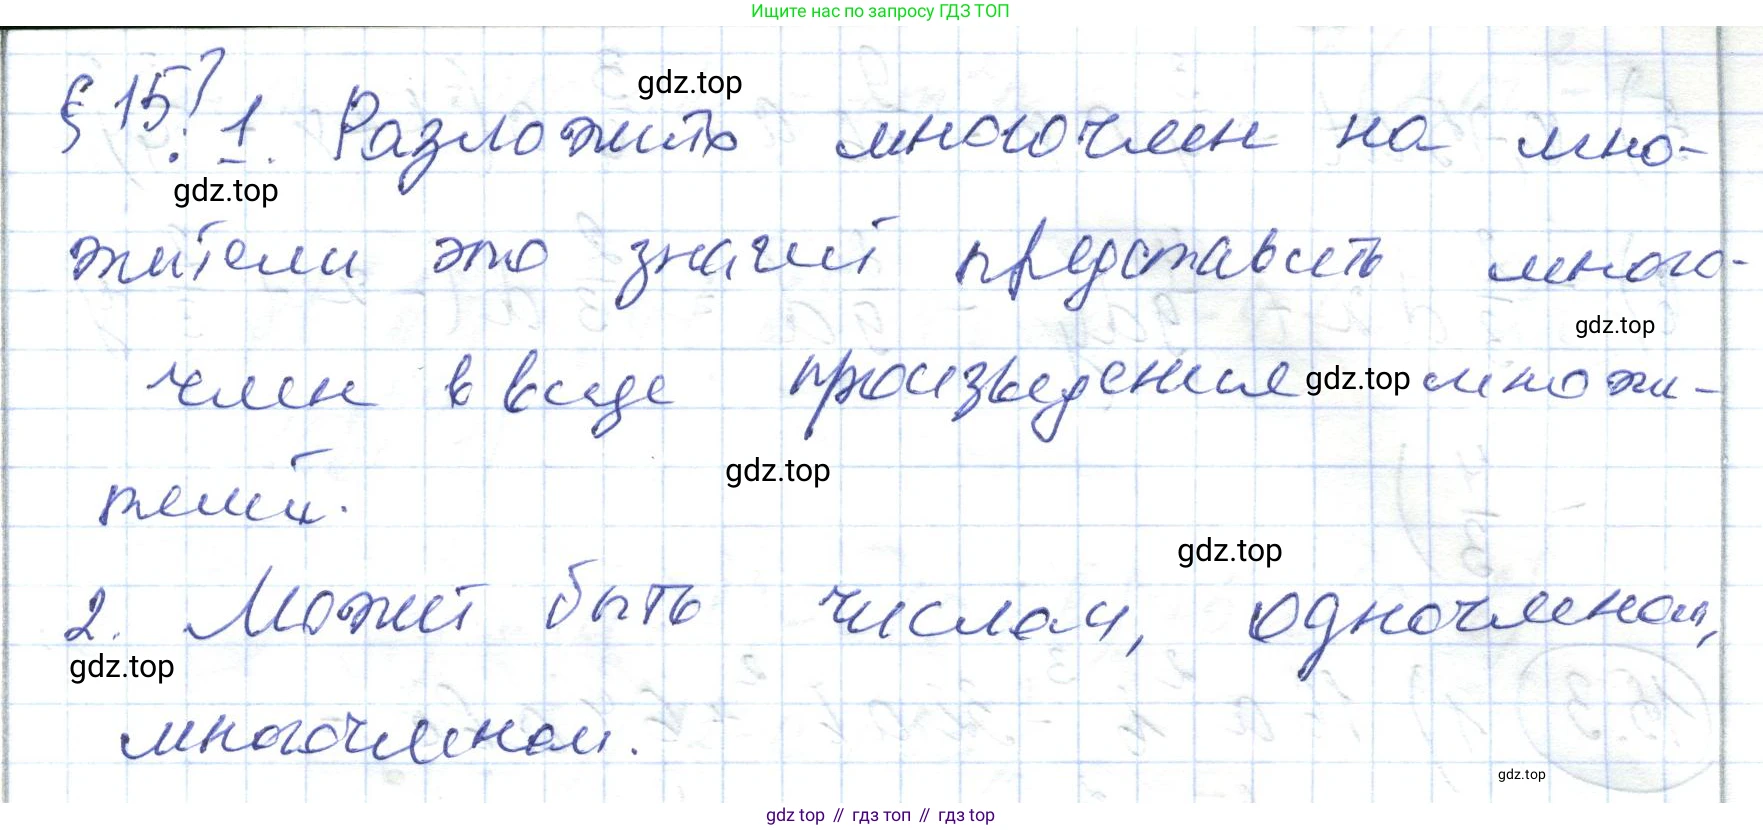 Ищите нас по запросу ГДЗ ТОП
gdz.top
§ 15? 1. Разложить многочлен на мно-
gdz.top
жители это значит представить много-
gdz.top
член в виде произведения множи-
gdz.top
gdz.top
телей.
gdz.top
2. Может быть числом, одночленом,
gdz.top
многочленом.
gdz.top
gdz top // гдз топ // гдз top